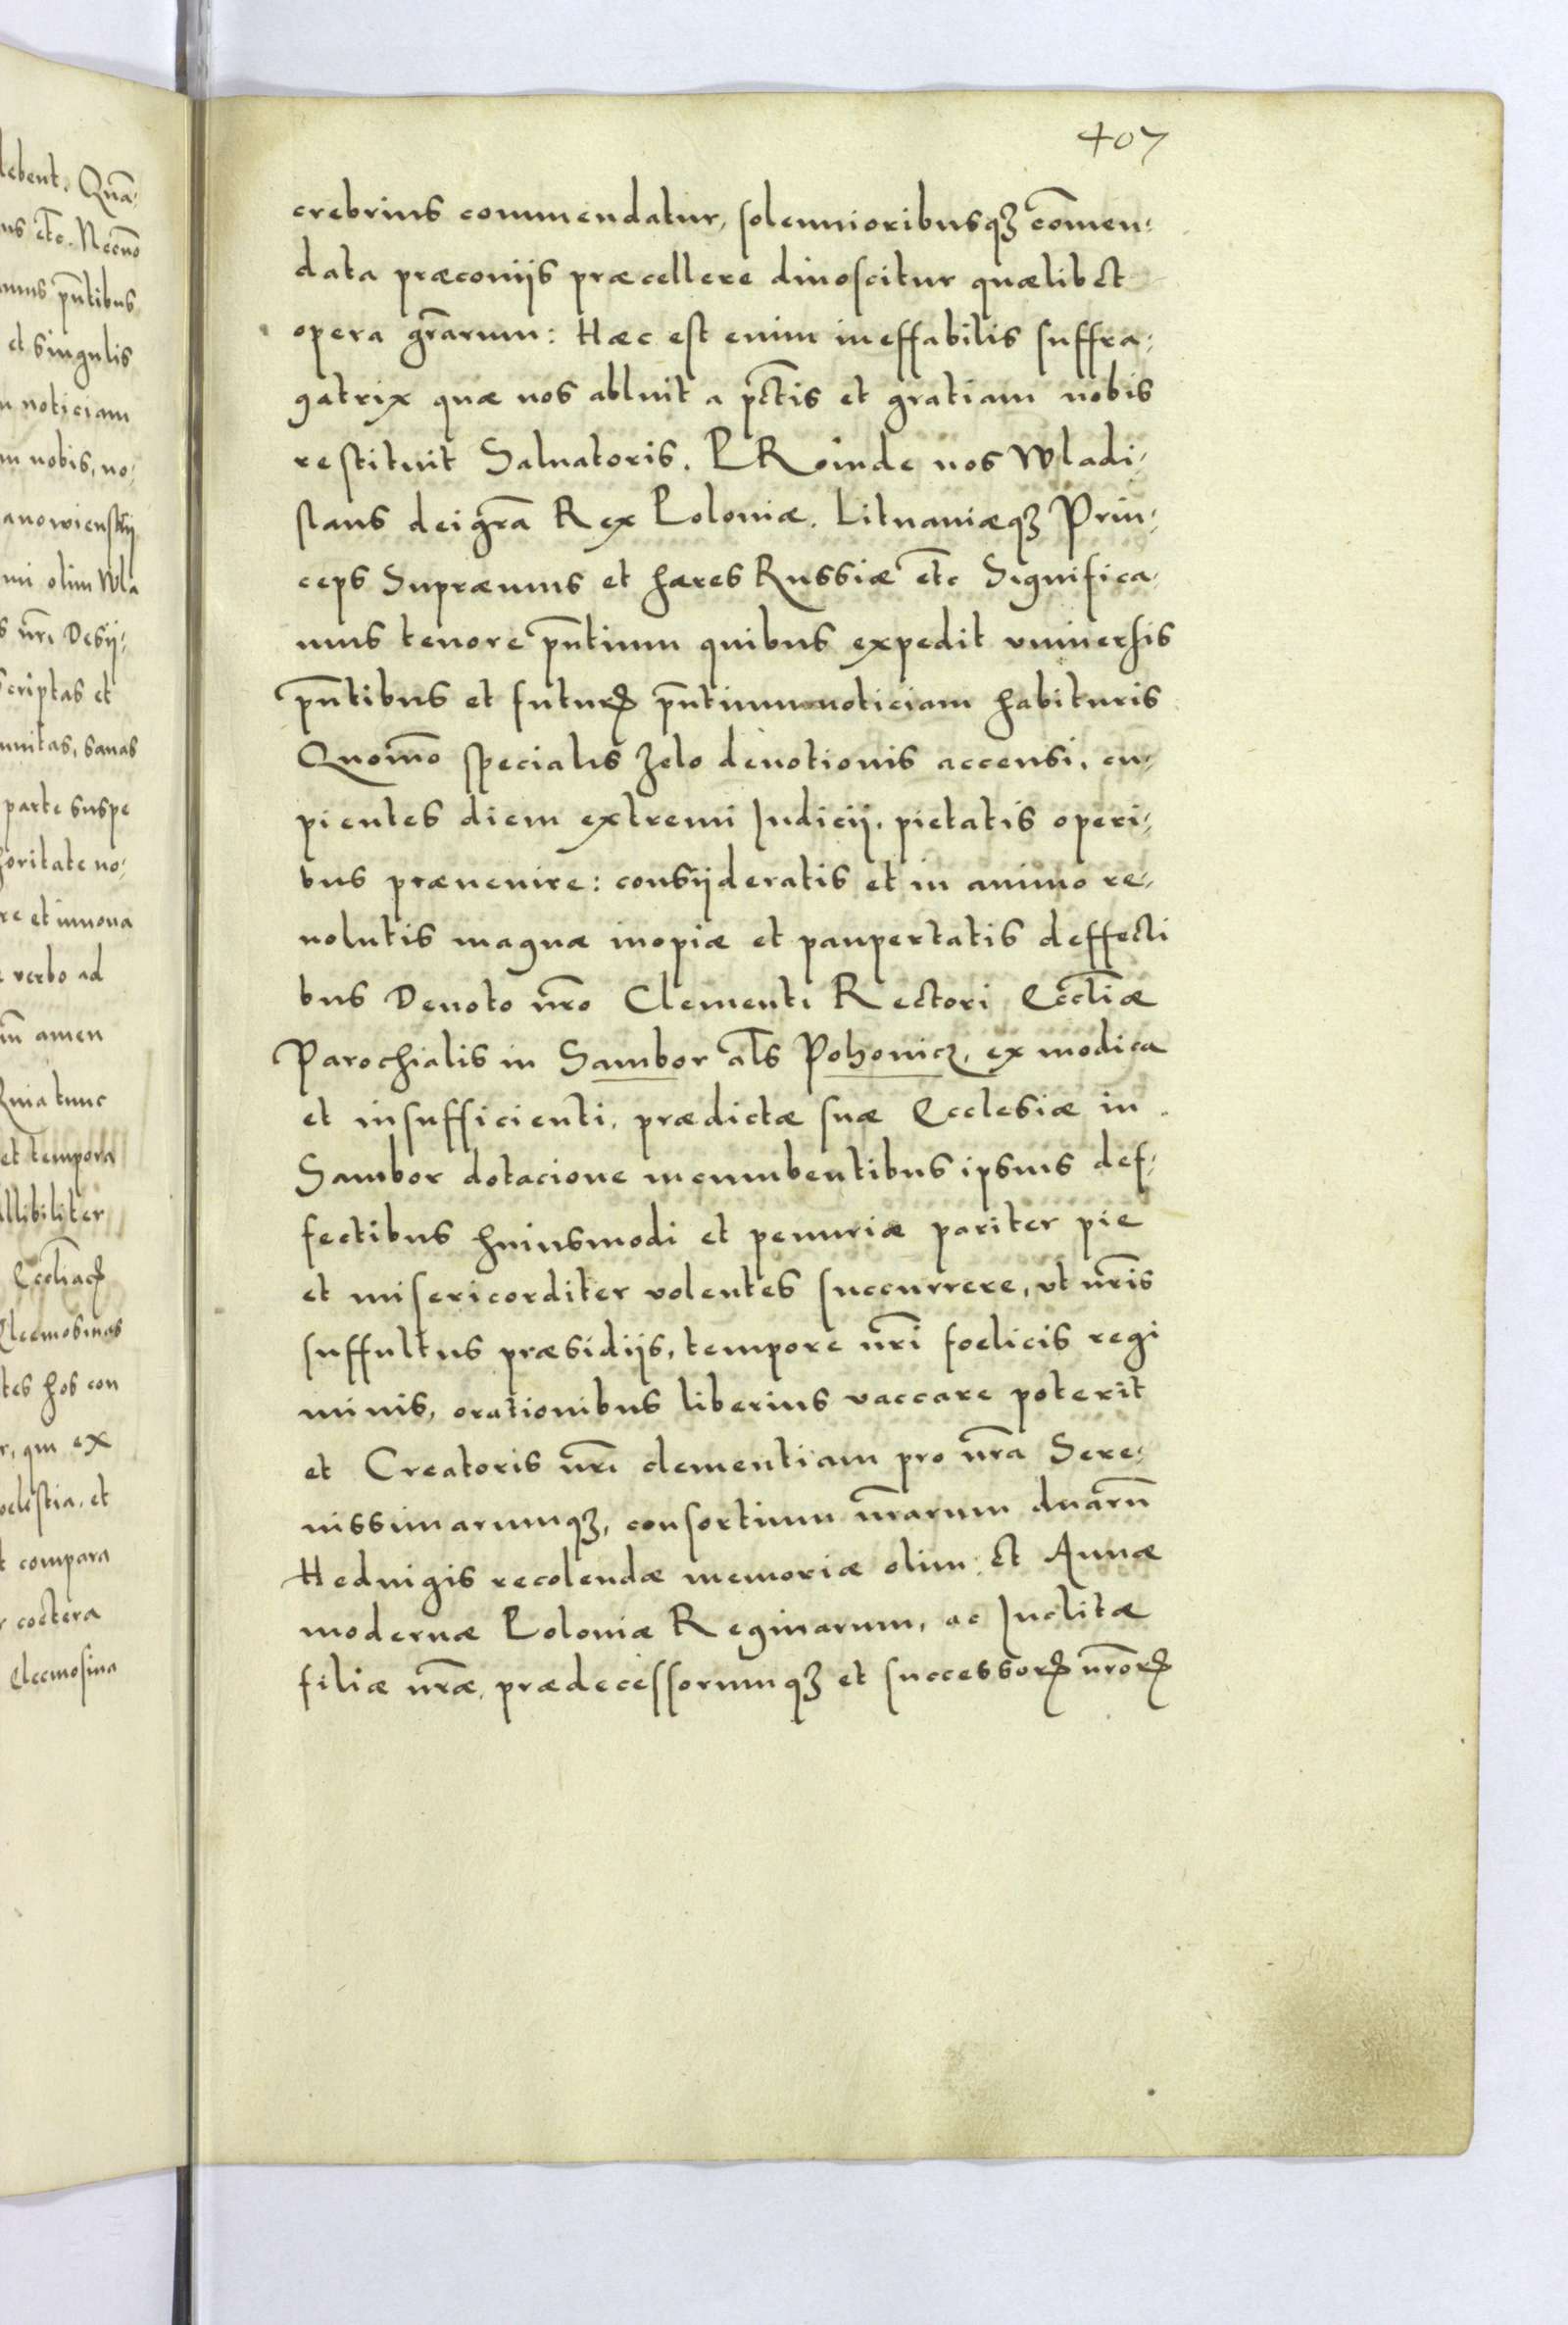 407
crebrius commendatur, solemnioribusqꝫ com̄en⸗
data præconijs præcellere dinoscitur quælibet
opera gr̄arum: Hæc est enim ineffabilis suffra⸗
gatrix quæ nos abluit a pct̄is et gratiam nobis
restituit Saluatoris. PRoinde nos Wladi⸗
slaus dei gr̄a Rex Poloniæ. Lituaniæqꝫ Prin⸗
ceps Supræmus et hæres Russiæ etc̄ Significa⸗
mus tenore pn̄tium quibus expedit vniuersis
pn̄tibus et futurꝭ pn̄tium noticiam habituris
Quom̄o specialis zelo deuotionis accensi, cu⸗
pientes diem extremi Iudicij, pietatis operi⸗
bus præuenire: consijderatis et in animo re⸗
uolutis magnæ inopiæ et paupertatis deffecti
bus Deuoto nr̄o Clementi Rectori Eccl̄iæ
Parochialis in Sambor al̄s Pohonicz, ex modica
et insufficienti, prædictæ suæ Ecclesiæ in
Sambor dotacione incumbentibus ipsius def⸗
fectibus huiusmodi et penuriæ pariter pie
et misericorditer volentes succurrere, vt nr̄is
suffultus præsidijs, tempore nr̄i foelicis regi
minis, orationibus liberius vaccare poterit
et Creatoris nr̄i clementiam pro nr̄a Sere⸗
nissimarumqꝫ, consortium nr̄arum duarū
Heduigis recolendæ memoriæ olim: et Annæ
modernæ Poloniæ Reginarum, ac Inclitæ
filiæ nr̄æ, prædecessorumqꝫ et successorꝝ nr̄orꝝ
lebent. Quā⸗
us etc̄. Necnō
amus pn̄tibus
et singulis
noticiam
nobis, no⸗
olim Wla
nr̄i Desij⸗
scriptas et
sanas
parte suspe
horitate no⸗
re et innoua
verbo ad
amen
tunc
et tempora
allibiliter
Eccl̄iaꝝ
Eleemosinas
tes hos con
r, qui ex
oelestia, et
t compara
coetera
Eleemosina